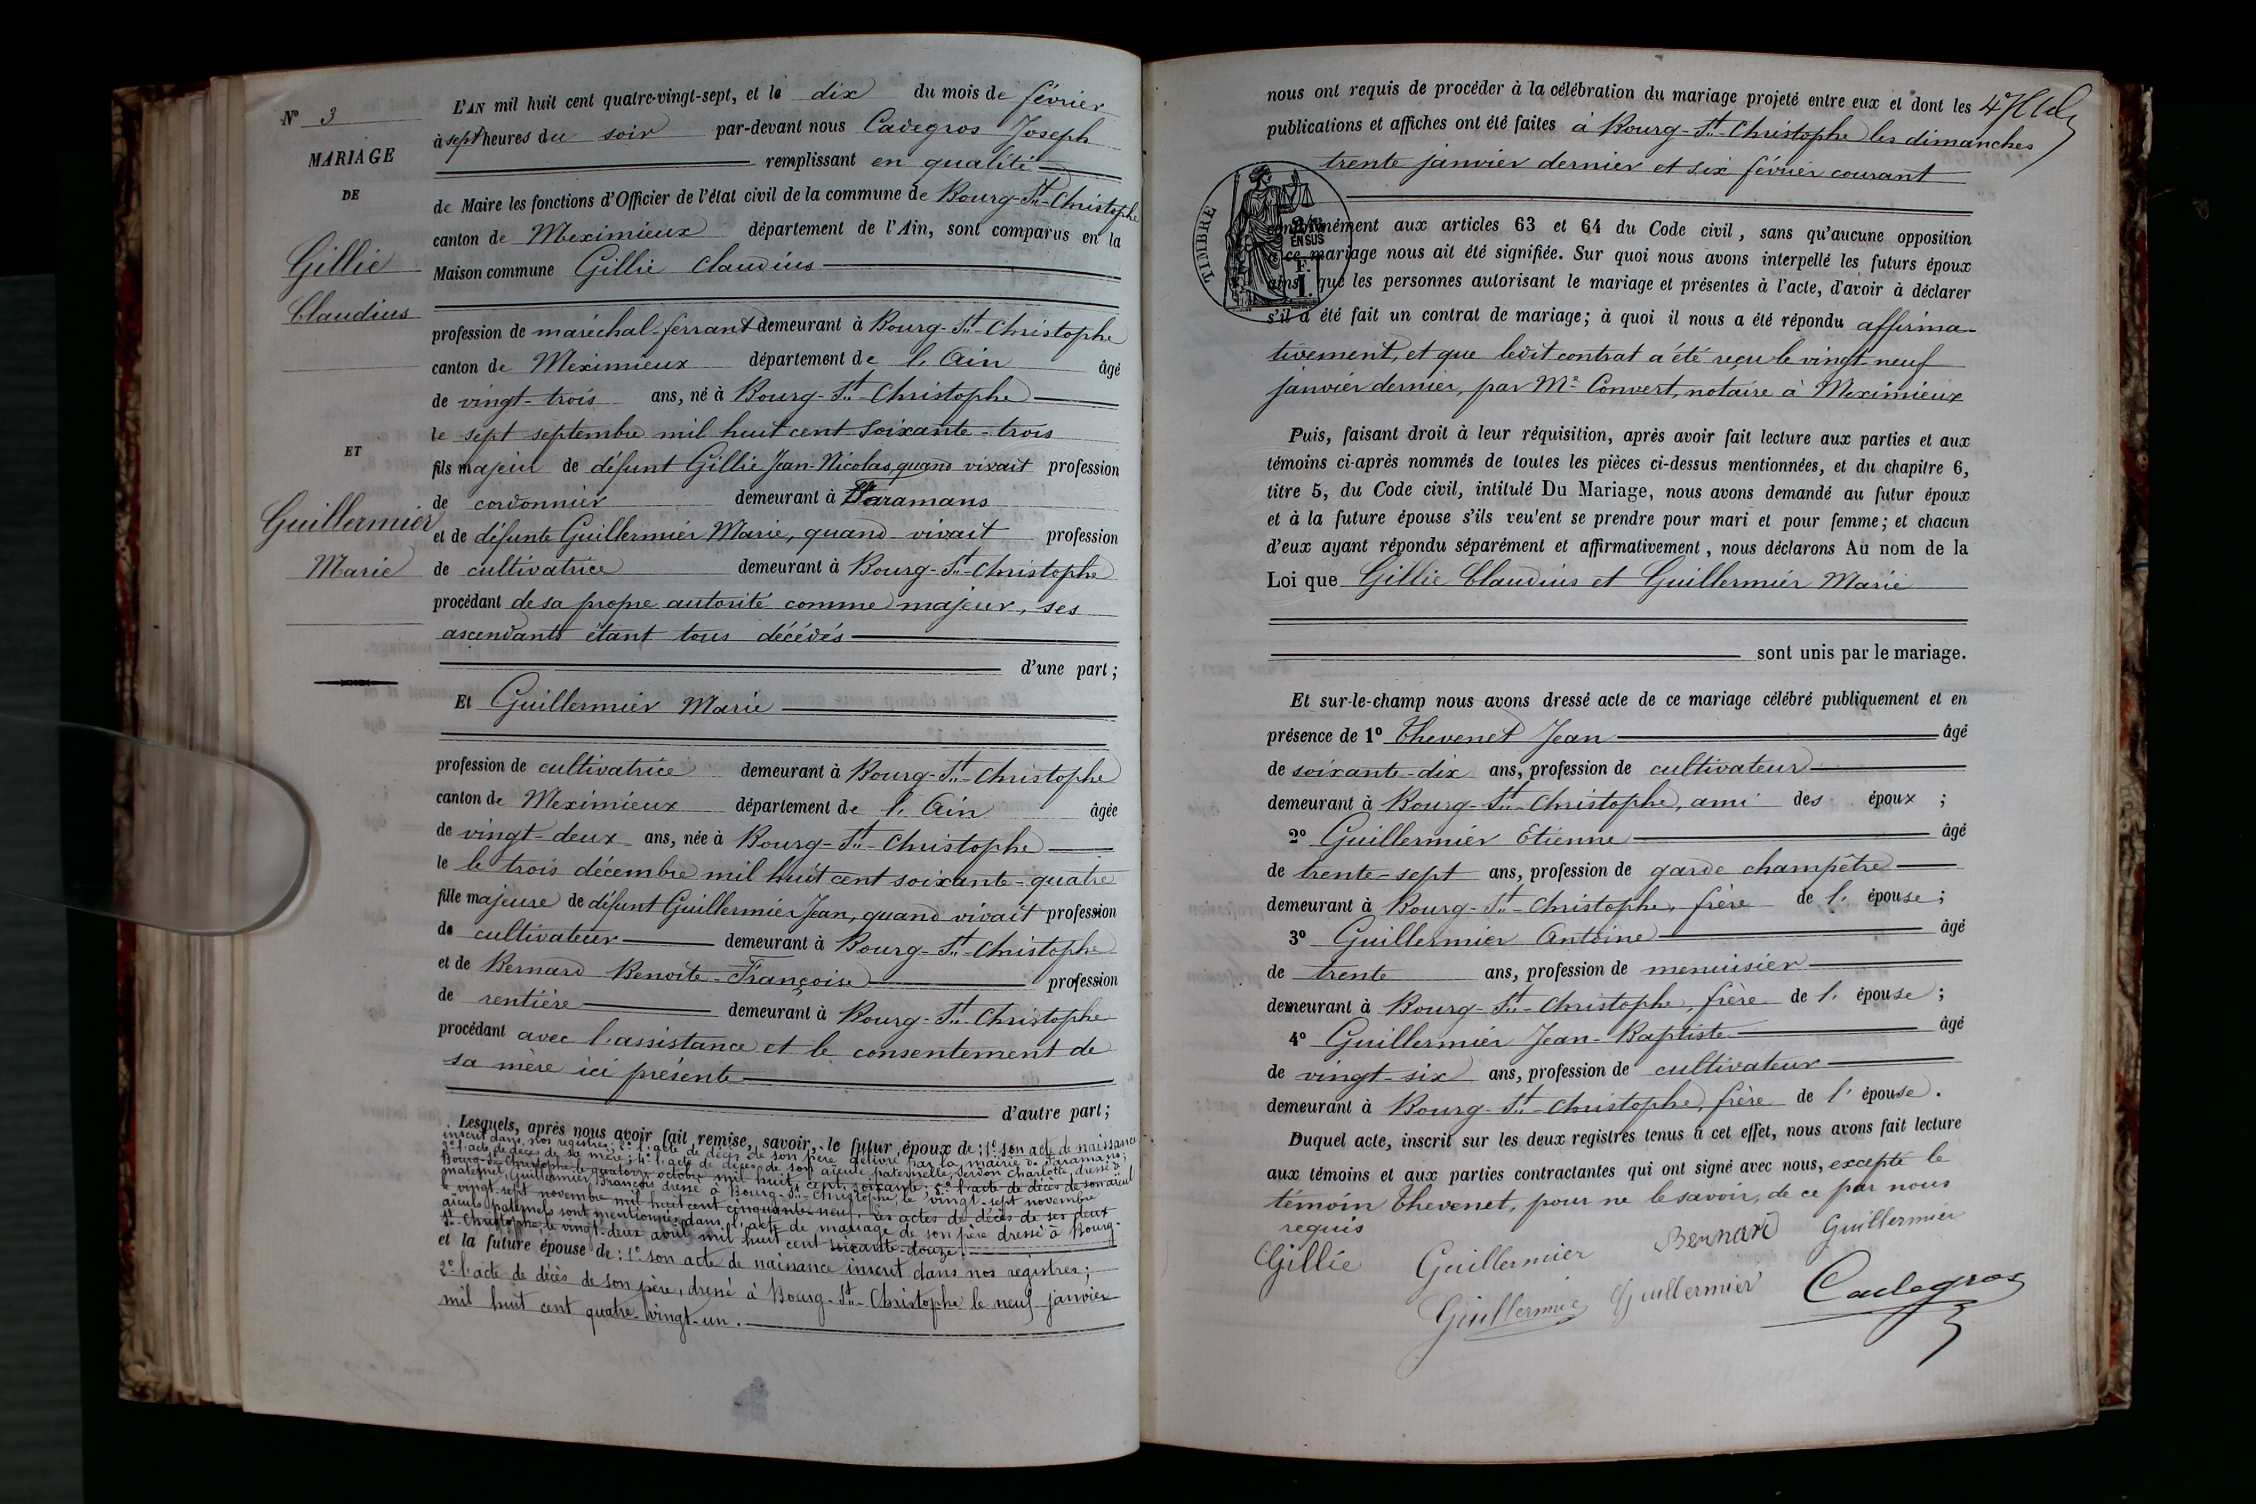 N° 3
MARIAGE
DE
Gillie
Claudius
ET
Guillermier
Marie
L'AN mil huit cent quatre-vingt-sept, et le dix du mois de février
à sept heures du soir par-devant nous Cadegros Joseph
remplissant en qualité
de Maire les fonctions d'Officier de l'état civil de la commune de Bourg-St-Christophe
canton de Meximieux département de l'Ain, sont comparus en la
Maison commune Gillie Claudius
profession de maréchal-ferrant demeurant à Bourg-St-Christophe
canton de Meximieux département de l'Ain âgé
de vingt-trois ans, né à Bourg-St-Christophe
le sept septembre mil huit cent soixante-trois
fils majeur de défunt Gillie Jean-Nicolas, quand vivait profession
de cordonnier demeurant à Faramans
et de défunte Guillermier Marie, quand vivait profession
de cultivatrice demeurant à Bourg-St-Christophe
procédant de sa propre autorité comme majeur, ses
ascendants étant tous décédés
d'une part;
Et Guillermier Marie
profession de cultivatrice demeurant à Bourg-St-Christophe
canton de Meximieux département de l'Ain âgée
de vingt-deux ans, née à Bourg-St-Christophe
le le trois décembre mil huit cent soixante-quatre
fille majeure de défunt Guillermier Jean, quand vivait profession
de cultivateur demeurant à Bourg-St-Christophe
et de Bernard Benoîte-Françoise profession
de rentière demeurant à Bourg-St-Christophe
procédant avec l'assistance et le consentement de
sa mère ici présente
d'autre part;
Lesquels, après nous avoir fait remise, savoir, le futur époux de: 1° son acte de naissance
inscrit dans nos registres; 2° l'acte de décès de son père délivré par la mairie de Faramans;
3° l'acte de décès de sa mère; 4° l'acte de décès de son aïeule paternelle Serdon Charlotte, dressé à
Bourg-St-Christophe le quatorze octobre mil huit cent soixante; 5° l'acte de décès de son aïeul
maternel Guillermier François dressé à Bourg-St-Christophe, le vingt-sept novembre
le vingt-sept novembre mil huit cent cinquante-neuf. Les actes de décès de ses deux
aïeuls paternels sont mentionnés dans l'acte de mariage de son père dressé à Bourg-
St-Christophe le vingt-deux avril mil huit cent soixante-douze.
et la future épouse de: 1° son acte de naissance inscrit dans nos registres;
2° l'acte de décès de son père, dressé à Bourg-St-Christophe le neuf janvier
mil huit cent quatre-vingt-un.
nous ont requis de procéder à la célébration du mariage projeté entre eux et dont les
publications et affiches ont été faites à Bourg-St-Christophe les dimanches
trente janvier dernier et six février courant
TIMBRE
2/10 EN SUS
F. 1.
conformément aux articles 63 et 64 du Code civil, sans qu'aucune opposition
à ce mariage nous ait été signifiée. Sur quoi nous avons interpellé les futurs époux
ainsi que les personnes autorisant le mariage et présentes à l'acte, d'avoir à déclarer
s'il a été fait un contrat de mariage; à quoi il nous a été répondu affirma-
tivement, et que ledit contrat a été reçu le vingt-neuf
janvier dernier, par Me Convert, notaire à Meximieux
Puis, faisant droit à leur réquisition, après avoir fait lecture aux parties et aux
témoins ci-après nommés de toutes les pièces ci-dessus mentionnées, et du chapitre 6,
titre 5, du Code civil, intitulé Du Mariage, nous avons demandé au futur époux
et à la future épouse s'ils veu'ent se prendre pour mari et pour femme; et chacun
d'eux ayant répondu séparément et affirmativement, nous déclarons Au nom de la
Loi que Gillie Claudius et Guillermier Marie
sont unis par le mariage.
Et sur-le-champ nous avons dressé acte de ce mariage célébré publiquement et en
présence de 1° Thevenet Jean âgé
de soixante-dix ans, profession de cultivateur
demeurant à Bourg-St-Christophe, ami des époux;
2° Guillermier Etienne âgé
de trente-sept ans, profession de garde champêtre
demeurant à Bourg-St-Christophe, frère de l'épouse;
3° Guillermier Antoine âgé
de trente ans, profession de menuisier
demeurant à Bourg-St-Christophe, frère de l'épouse;
4° Guillermier Jean-Baptiste âgé
de vingt-six ans, profession de cultivateur
demeurant à Bourg-St-Christophe, frère de l'épouse.
Duquel acte, inscrit sur les deux registres tenus à cet effet, nous avons fait lecture
aux témoins et aux parties contractantes qui ont signé avec nous, excepté le
témoin Thevenet, pour ne le savoir, de ce par nous
requis
Gillie Guillermier Bernard Guillermier
Guillermie Guillermier Cadegros